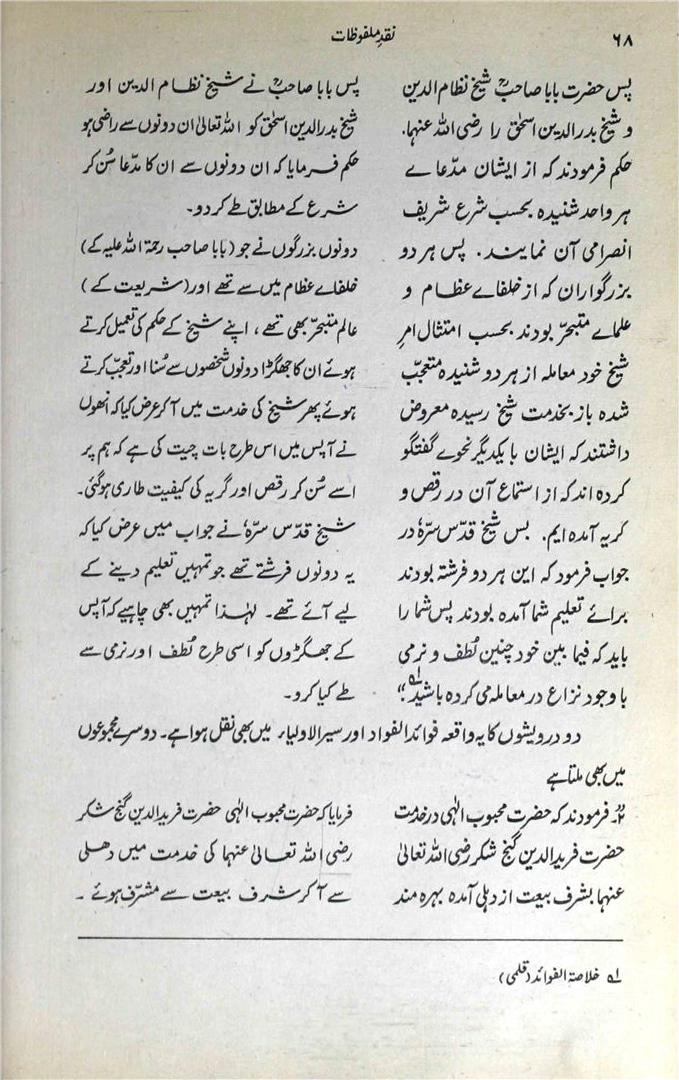 ۶۸
نقدِ ملفوظات
پس حضرت بابا صاحبؒ شیخ نظام الدین
و شیخ بدرالدین اسحٰق را رضی اللہ عنہما.
حکم فرمودند کہ از ایشان مدّعاے
ہر واحد شنیدہ بحسب شرع شریف
انصرامی آن نمایند. پس ہر دو
بزرگواران کہ از خلفاے عظام و
علماے متبحّر بودند بحسب امتثال امرِ
شیخ خود معاملہ از ہر دو شنیدہ متعجّب
شدہ باز بخدمت شیخ رسیدہ معروض
داشتند کہ ایشان با یکدیگر نحوے گفتگو
کردہ اند کہ از استماع آن در رقص و
گریہ آمدہ ایم. بس شیخ قدّس سرّہٗ در
جواب فرمود کہ این ہر دو فرشتہ بودند
برائے تعلیم شما آمدہ بودند پس شما را
باید کہ فیما بین خود چنین لُطف و نرمی
با وجود نزاع در معاملہ می کردہ باشید.“ ۱؎
پس بابا صاحبؒ نے شیخ نظام الدین اور
شیخ بدرالدین اسحٰق کو اللہ تعالیٰ ان دونوں سے راضی ہو
حکم فرمایا کہ ان دونوں سے ان کا مدّعا سُن کر
شرع کے مطابق طے کر دو۔
دونوں بزرگوں نے جو (بابا صاحب رحمۃ اللہ علیہ کے)
خلفاے عظام میں سے تھے اور (شریعت کے)
عالم متبحّر بھی تھے، اپنے شیخ کے حکم کی تعمیل کرتے
ہوئے ان کا جھگڑا دونوں شخصوں سے سُنا اور تعجّب کرتے
ہوئے پھر شیخ کی خدمت میں آ کر عرض کیا کہ انھوں
نے آپس میں اس طرح بات چیت کی ہے کہ ہم پر
اسے سُن کر رقص اور گریہ کی کیفیت طاری ہو گئی۔
شیخ قدّس سرّہٗ نے جواب میں عرض کیا کہ
یہ دونوں فرشتے تھے جو تمہیں تعلیم دینے کے
لیے آئے تھے۔ لہٰذا تمہیں بھی چاہیے کہ آپس
کے جھگڑوں کو اسی طرح لُطف اور نرمی سے
طے کیا کرو۔
دو درویشوں کا یہ واقعہ فوائد الفواد اور سیر الاولیاء میں بھی نقل ہوا ہے۔ دوسرے مجموعوں
میں بھی ملتا ہے
۲۔ فرمودند کہ حضرت محبوب الٰہی در خدمت
حضرت فرید الدین گنج شکر رضی اللہ تعالیٰ
عنہما بشرف بیعت از دہلی آمدہ بہرہ مند
فرمایا کہ حضرت محبوب الٰہی حضرت فرید الدین گنج شکر
رضی اللہ تعالیٰ عنہما کی خدمت میں دھلی
سے آ کر شرف بیعت سے مشرّف ہوئے ۔
۱؎ خلاصۃ الفوائد (قلمی)